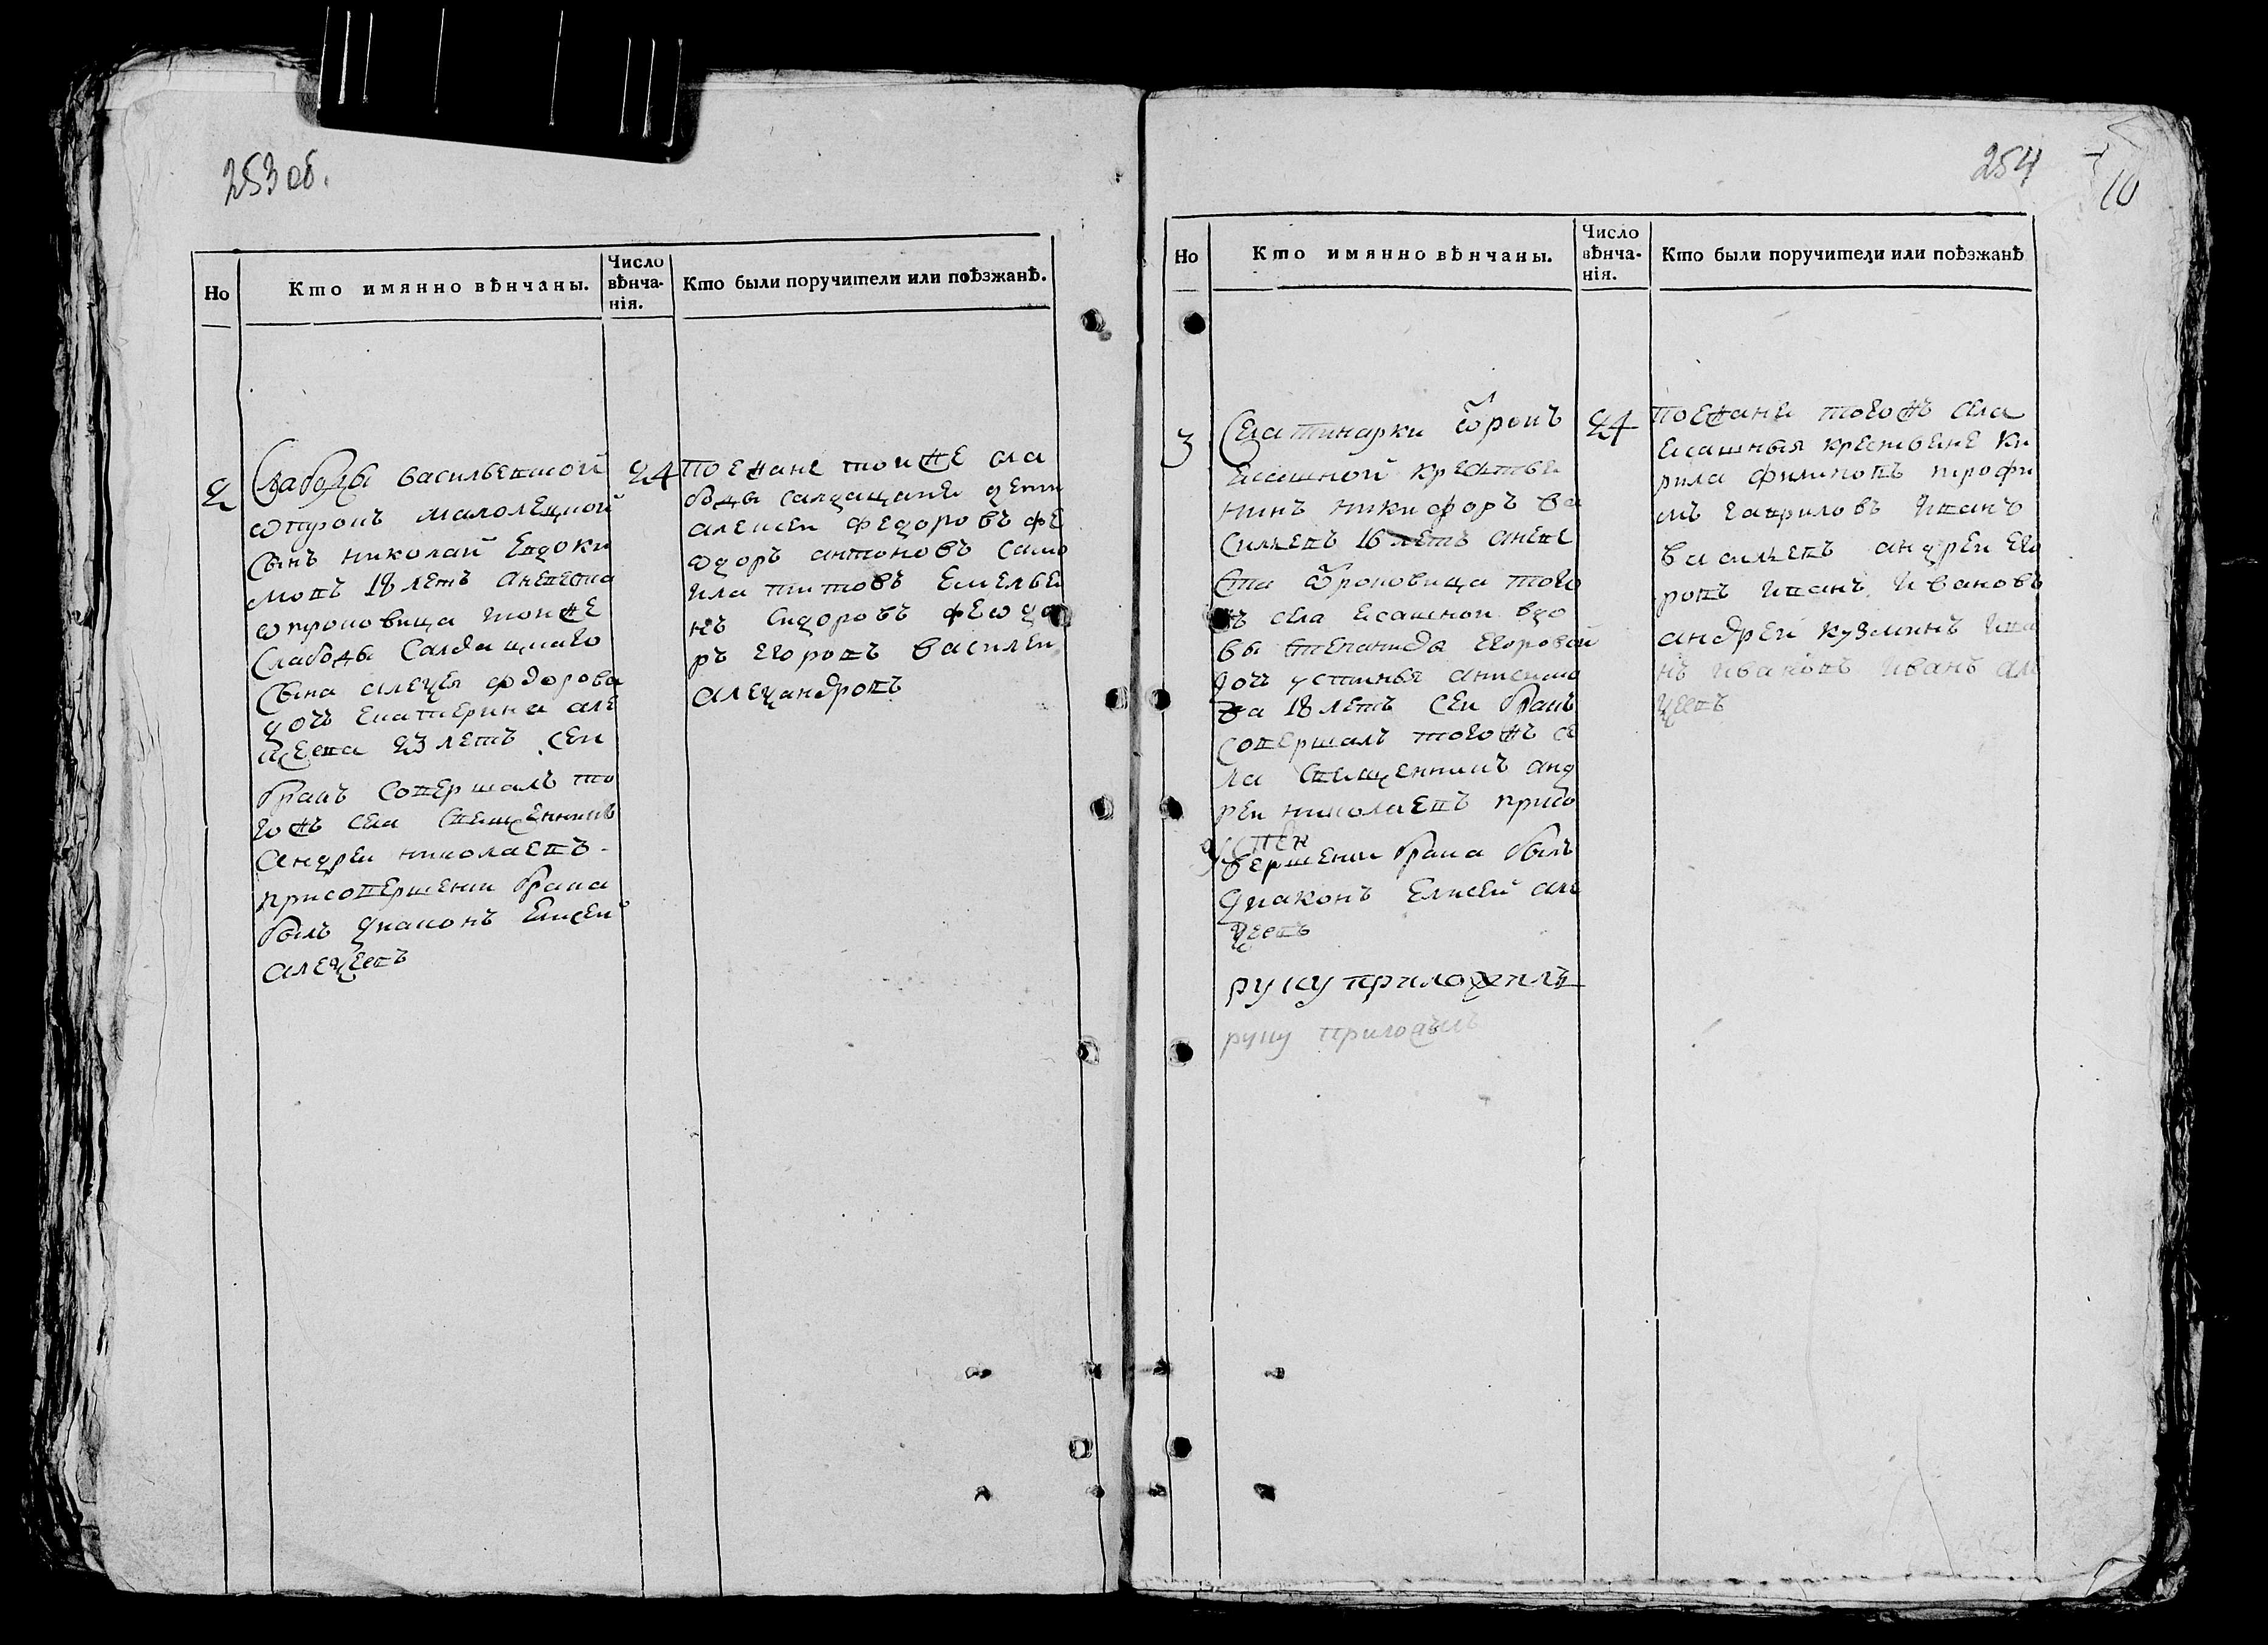 253 об.
Но
Кто имянно вѣнчаны.
Число вѣнча-
нія.
Кто были поручители или поѣзжанѣ.
2
Слабоды васильевской
ѡтрокъ малолецкой
сынъ николай Евдоки
мовъ 18 летъ аневеста
ѡтроковица тоиже
слабоды салдацкаго
сына алецея фдорова
дочь екатерина але
цеева 23 летъ сеи
бракъ совершалъ то
гожъ села священникъ
андреи николаевъ
присовершении брака
былъ диаконъ елисей
алецеевъ
24
поежане тоиже сла
боды салдацкие
алексеи федоровъ фе
ѡдоръ антоновъ само
ила титовъ емелья
нъ сидоровъ феѡдо
ръ егоровъ василеи
алецандровъ
254
10
Но
Кто имянно вѣнчаны.
Число
вѣнча-
нія.
Кто были поручители или поѣзжанѣ
3
Села тинарки ѿрокъ
ясашной крестья
нинъ никифоръ ва
сильевъ 16 летъ аневе
ста ѿроковица того
жъ села ясашной вдо
вы степаниды егоровой
дочь устинья анисимо
ва 18 летъ сеи бракъ
совершалъ тогожъ се
ла священникъ анд
реи николаевъ присо
вершении брака былъ
диаконъ елисей але
цеевъ
руку приложилъ
руку приложилъ
24
поежане тогожъ села
ясашныя крестьяне ки
рила филиповъ трофи
мъ гавриловъ иванъ
васильевъ андреи его
ровъ иванъ ивановъ
андрей кузминъ ива
нъ ивановъ иванъ але
цеевъ